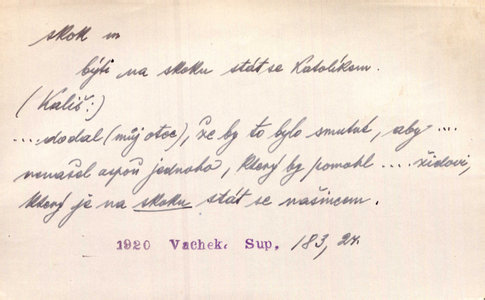 skok m
býti na skoku stát se Katolíkem.
(Kališ:)
.... dodal (můj otec), že by to bylo smutné, aby ....
nenašel aspoň jednoho, který by pomohl .... židovi,
který je na skoku stát se našincem.
1920 Vachek. Sup. 183, 24